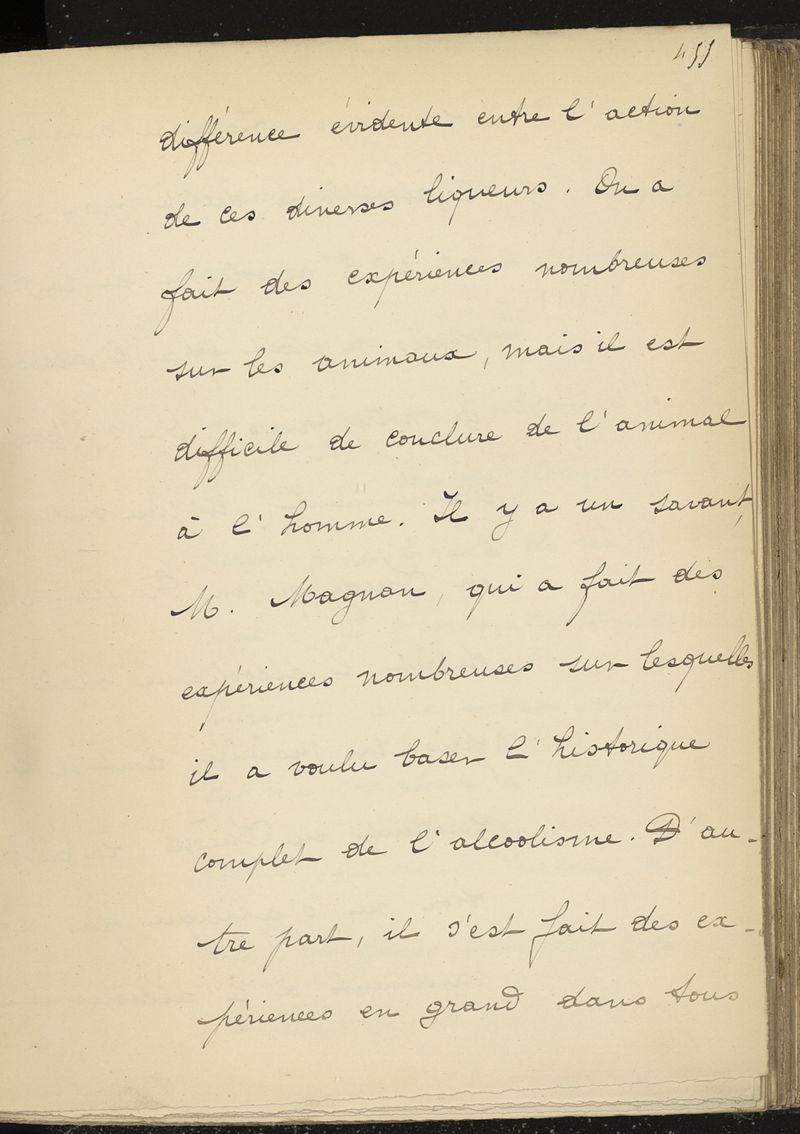 455
différence évidente entre l'action
de ces diverses liqueurs. On a
fait des expériences nombreuses
sur les animaux, mais il est
difficile de conclure de l'animal
à l'homme. Il y a un savant,
M. Magnan, qui a fait des
expériences nombreuses sur lesquelles
il a voulu baser l'historique
complet de l'alcoolisme. D'au-
tre part, il s'est fait des ex-
périences en grand dans tous